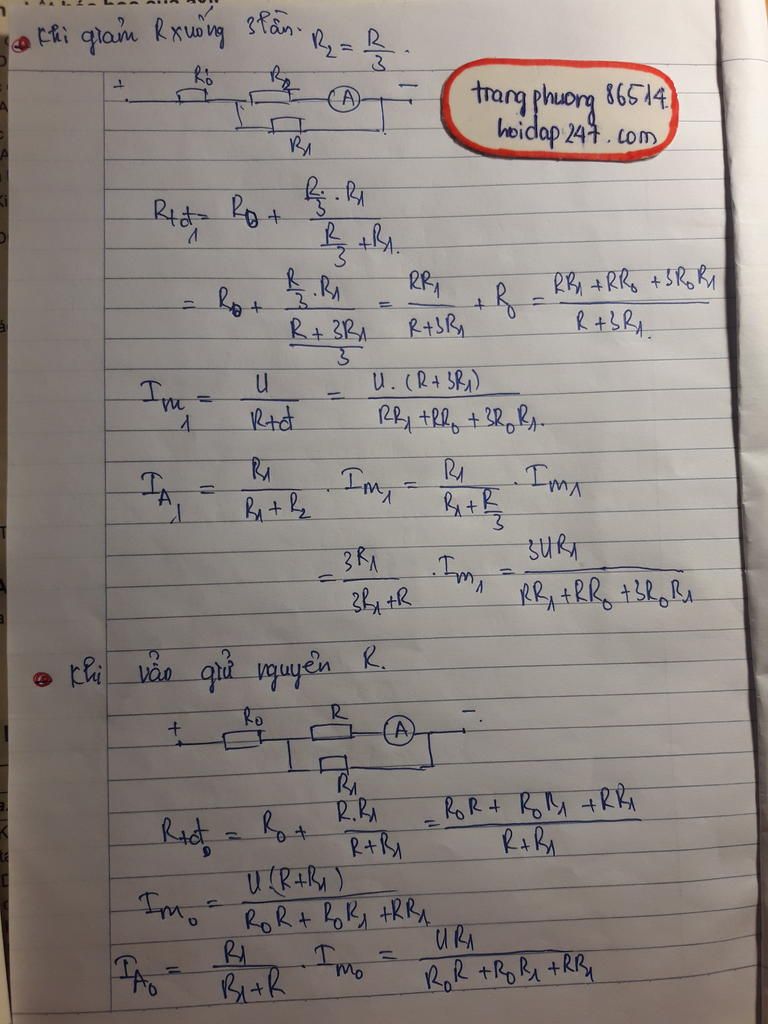 Khi giảm R xuống 3 lần. R₂ = R/3.
+ R₀ R₂ A −
R₁
trangphuong 86514.
hoidap247.com
Rtđ₁ = R₀ + (R/3 . R₁)/(R/3 + R₁).
= R₀ + (R/3 . R₁)/((R + 3R₁)/3) = RR₁/(R+3R₁) + R₀ = (RR₁ + RR₀ + 3R₀R₁)/(R + 3R₁.)
Im₁ = U/Rtđ = U.(R+3R₁)/(RR₁ + RR₀ + 3R₀R₁.)
IA₁ = R₁/(R₁ + R₂) . Im₁ = R₁/(R₁ + R/3) . Im₁
= 3R₁/(3R₁+R) . Im₁ = 3UR₁/(RR₁ + RR₀ + 3R₀R₁)
Khi vẫn giữ nguyên R.
+ R₀ R A −.
R₁
Rtđ₀ = R₀ + R.R₁/(R+R₁) = (R₀R + R₀R₁ + RR₁)/(R+R₁)
Im₀ = U.(R+R₁)/(R₀R + R₀R₁ + RR₁)
IA₀ = R₁/(R₁+R) . Im₀ = UR₁/(R₀R + R₀R₁ + RR₁)